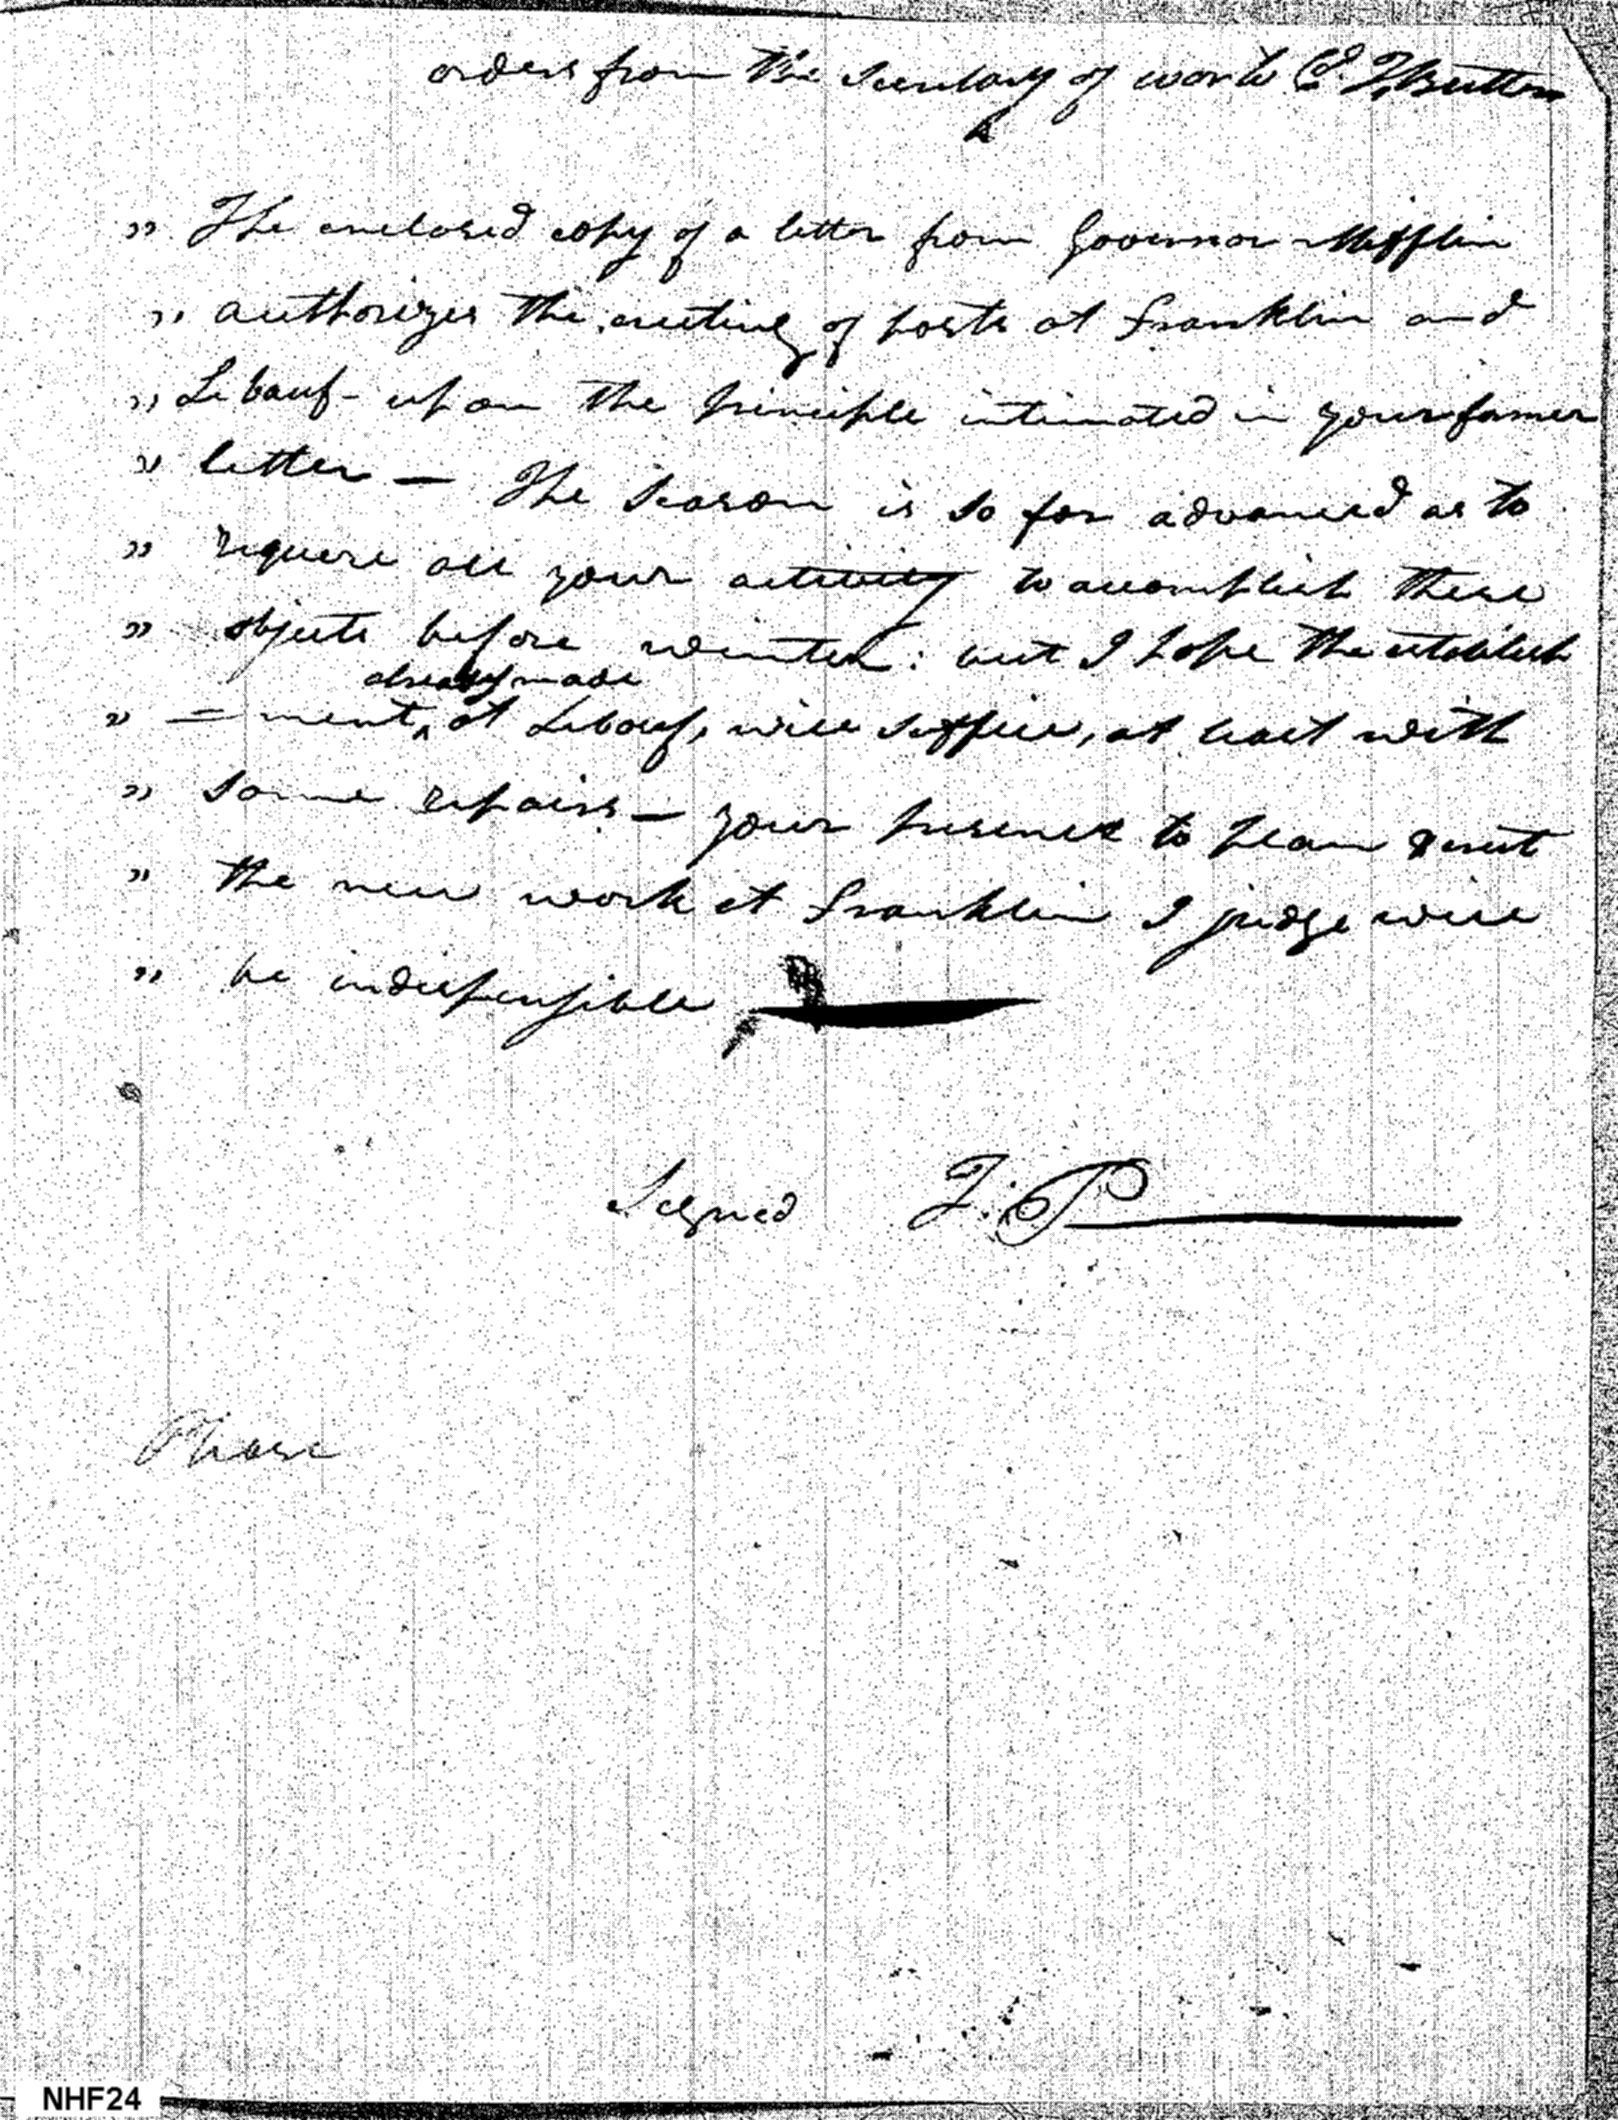 orders from the Secretary of war to Cd. T, Butler
A
" The enclosed copy of a letter from Governor Mifflin
" authorizes the erecting of posts at Franklin and
" Lebauf - upon the principle intimated in your former
" letter — The season is so far advanced as to
" require all your activity to accomplish these
" objects before winter: but I hope the establish
already made
" = ment, at Lebouf, will suffice, at least with
" some repairs — your presence to plan & erect
" the new work at Franklin I judge will
" be indispensible
Signed T: P
NHF24